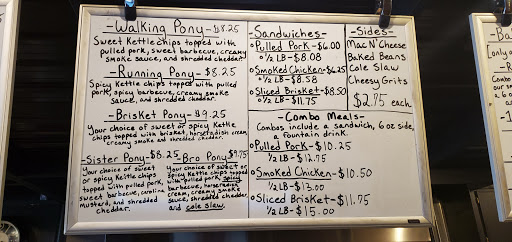 -Walking Pony-$8.25
Sweet Kettle chips topped with
pulled pork, sweet barbecue, creamy
smoke sauce, and shredded cheddar.
-Running Pony-$8.25
Spicy Kettle chips topped with pulled
pork, spicy barbecue, creamy smoke
sauce, and shredded cheddar.
-Brisket Pony-$9.25
Your choice of sweet or spicy Kettle
chips topped with brisket, horseradish cream,
creamy smoke and shredded cheddar.
-Sister Pony-$8.25
Your choice of sweet
or spicy Kettle chips
topped with pulled pork,
sweet barbecue, carolina
mustard, and shredded
cheddar.
-Bro Pony $9.75
Your choice of sweet or
spicy Kettle chips topped
with pulled pork, spicy
barbecue, horseradish
cream, creamy smoke
sauce, shredded cheddar,
and cole slaw.
-Sandwiches-
Pulled Pork-$6.00
1/2 LB-$8.08
Smoked Chicken-$6.25
1/2 LB-$8.58
Sliced Brisket-$8.50
1/2 LB-$11.75
-Sides-
Mac N' Cheese
Baked Beans
Cole Slaw
Cheesy Grits
$2.75 each
-Combo Meals-
Combos include a sandwich, 6 oz side,
a fountain drink.
Pulled Pork-$10.25
1/2 LB-$12.75
Smoked Chicken-$10.50
1/2 LB-$13.00
Sliced Brisket-$11.75
1/2 LB-$15.00